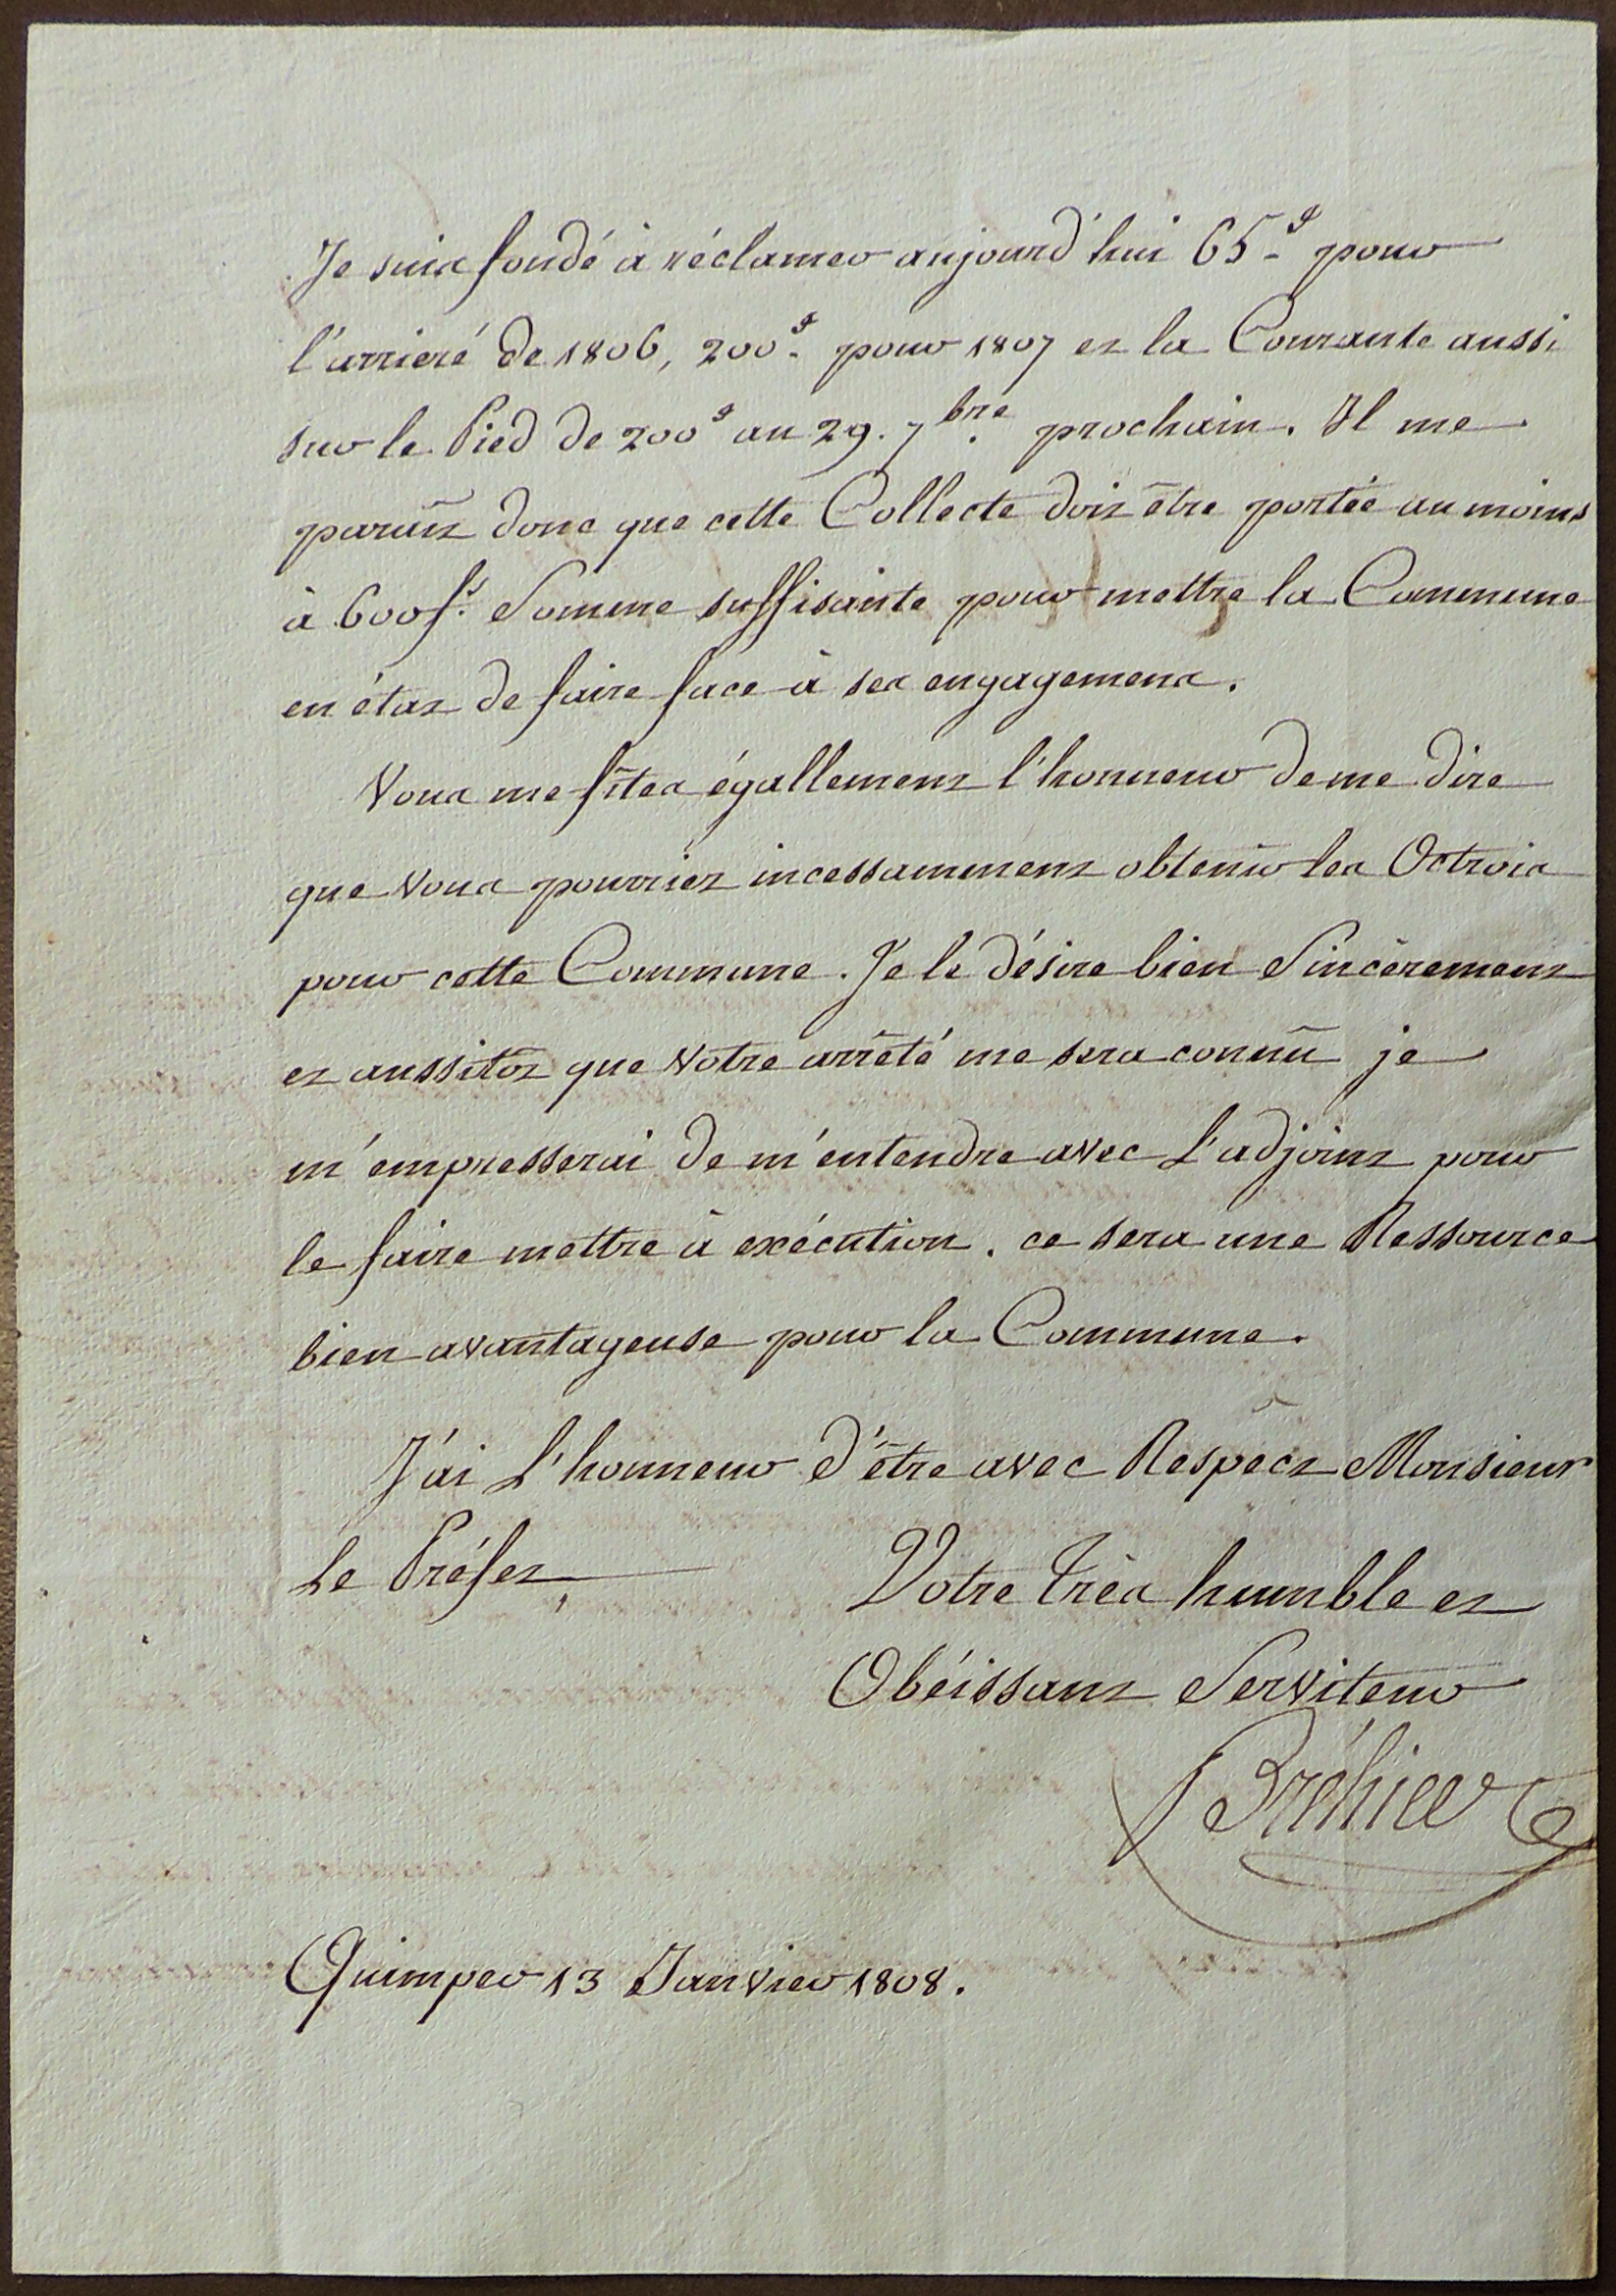 Je suis fondé à réclamer aujourd'hui 65 # pour
l'arrieré de 1806, 200 # pour 1807 et la Courante aussi
sur le Pied de 200 # au 29. 7bre. prochain. Il me
paraît donc que cette Collecte doit être portée au moins
à 600 fs. Somme suffisante pour mettre la Commune
en état de faire face à ses engagemens.
Vous me fîtes égallement l'honneur de me dire
que vous pourriez incessamment obtenir les Octrois
pour cette Commune. Je le désire bien Sincèrement
et aussitôt que votre arrêté me sera connû je
m'empresserai de m'entendre avec L'adjoint pour
le faire mettre à exécution. ce sera une Ressource
bien avantageuse pour la Commune.
J'ai L'honneur d'être avec Respect Monsieur
Le Préfet,
Votre très humble et
Obéissant Serviteur
Bréhier
Quimper 13 Janvier 1808.